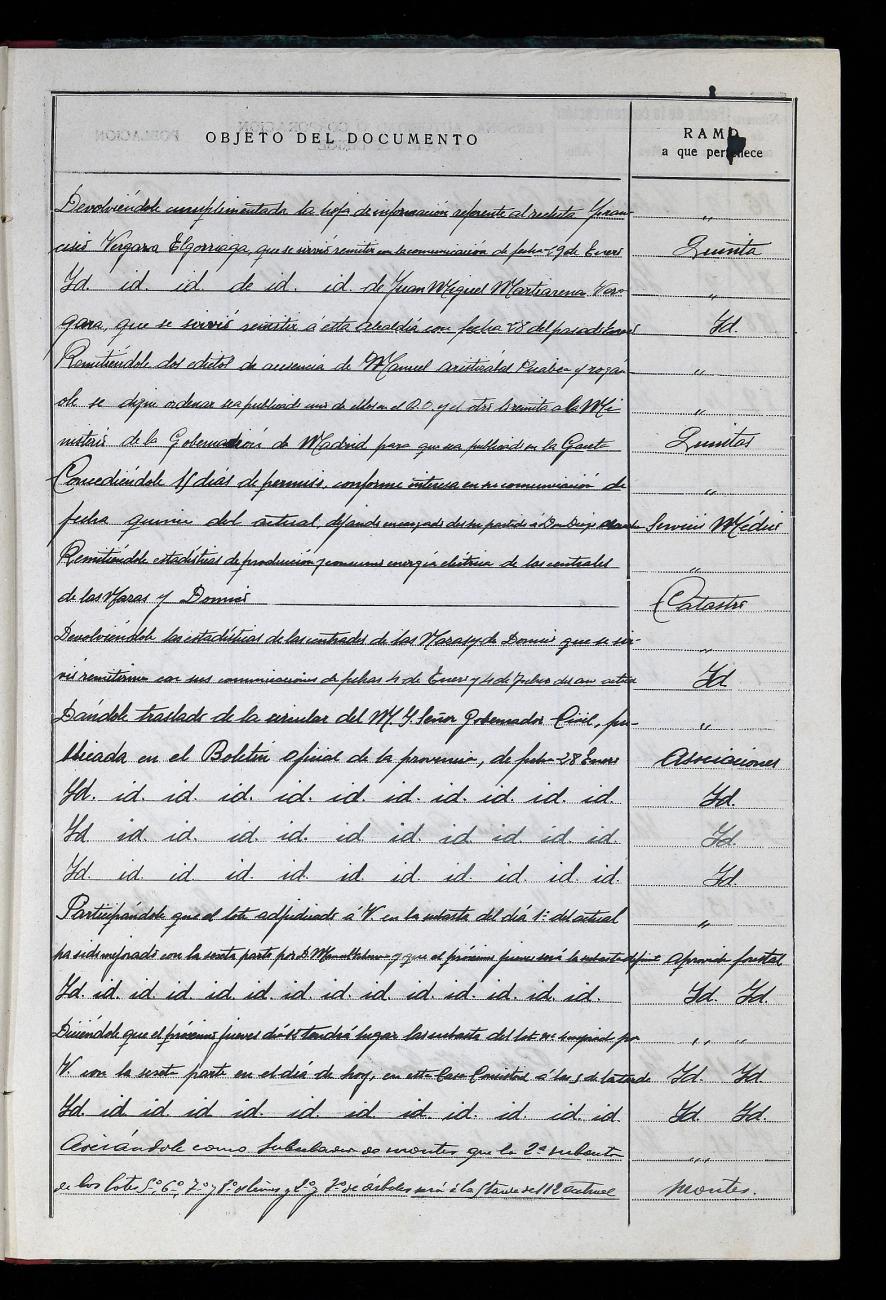 OBJETO DEL DOCUMENTO
RAMO
a que pertenece
Devolviéndole cumplimentada la hoja de información referente al recluta Fran- "
cisco Vergara Elgorriaga, que se sirvió remitir en la comunicación de fecha 29 de Enero Quinta
Id. id. id. de id. id. de Juan Miguel Martiarena Ver- "
gara, que se sirvió remitir á esta alcaldía con fecha 28 del pasado Enero Id.
Remitiéndole dos edictos de ausencia de Manuel Aristizabal y rogan- "
ole se digne ordenar sea publicado uno de ellos en el B.O. y el otro remita al Mi "
nisterio de la Gobernación de Madrid para que sea publicado en la Gaceta Quintas
Concediéndole 15 días de permiso, conforme interesa en su comunicación de "
fecha quince del actual, dejando encargado de su partido á Don Diego Servicio Médico
Remitiéndole estadísticas de producción y consumo energía eléctrica de las centrales "
de las Maras y Domic Catastro
Devolviéndole las estadísticas de las centrales de las Maras y de Domic que se sir- "
vió remitirme con sus comunicaciones de fechas 4 de Enero y 4 de Febrero del año actual Id
Dándole traslado de la circular del M. Y. Señor Gobernador Civil, pu- "
blicada en el Boletín oficial de la provincia, de fecha 28 Enero Asociaciones
Id. id. id. id. id. id. id. id. id. id. id. Id.
Id id. id. id. id. id id id id. id. id. Id.
Id. id. id id. id. id id. id. id. id id. Id
Participandole que el lote adjudicado á V. en la subasta del día 1º del actual "
ha sido mejorado con la sexta parte por D. Manuel y que el próximo jueves será la subasta defini Aprovto forestal
Id. id. id. id. id. id. id. id. id. id. id. id. Id. Id.
Diciéndole que el próximo jueves día tendrá lugar la subasta del lote mejorado por " "
V. con la sexta parte en el día de hoy, en esta Casa Consistorial á las 5 de la tarde Id. Id.
Id. id. id. id. id. id. id. id. id. id. id. Id Id.
Avisándole como Subastador de montes que la 2ª subasta "
de los lotes 5º, 6º, 7º y 8º de leñas y 2º y 7º de árboles será á la de 12 actual Montes.